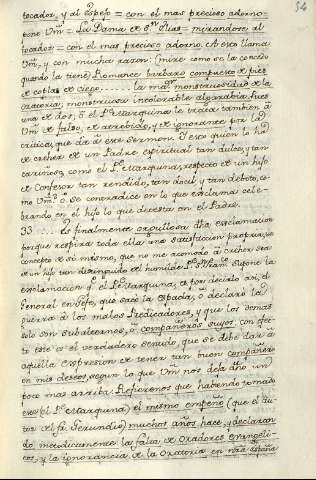 54
tocador, y al espejo = con el mas precioso adorno-
pone Vm = La Dama de 6 Dias = mirandose al
tocador = con el mas precioso adorno. A esto llama
Vm, y con mucha razon (mire como se la concedo
quando la tiene) Romance barbaro compuesto de pies
de coplas de ciego ..... la mas monstruosidad de la
oratoria; monstruosa intolerable algarabia. Pues
una de dos, ò el P. Marquina le trata tambien à
Vm de falso, de atrevido, y de ignorante por las
criticas, que da à ese Sermon. Y esto quien lo ha
de creher de un Padre espiritual tan dulce, y tan
cariñoso, como el P. Marquina, respecto de un hijo
de Confesor tan rendido, tan docil, y tan deboto, co-
mo Vm? O se contradice en lo que exclama cele-
brando en el hijo lo que detesta en el Padre.
33 .... Es finalmente orgullosa dha exclamacion
porque respira toda ella una satisfaccion propia, un
concepto de si mismo, que no me acomodo à creher sea
de un hijo tan distinguido del humilde P. S. Fran.co Supone la
exclamacion q el P. Marquina, es por decirlo asi, el
General en Gefe, que sacò la espada, ò declarò la
guerra à los malos Predicadores, y que los demas
solo son subalternos, ò compañeros suyos: con efec-
to este es el verdadero sentido, que se debe dar à
aquella expresion de tener tan buen compañero
en mis deseos, segun lo que Vm nos deja dho un
poco mas arriba. Refierenos que habiendo tomado
ese (el P. Marquina) el mismo empeño (que el Au-
tor de Fr. Gerundio) muchos años hace, y declaran-
do metodicamente las faltas de Oradores evangeli-
cos, y la ignorancia de la Oratoria en nra España